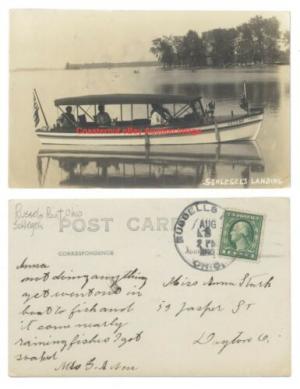 SCHLEGELS LANDING
Russells Point, Ohio
Schlegels
POST CARD
CORRESPONDENCE
RUSSELLS
AUG
OHIO
Anna
not doing anything
yet went out in
boat to fish and
it came nearly
raining fishes I got
soaped
Mrs G. A.
Miss Anna Stark
53 Jasper St
Dayton O.